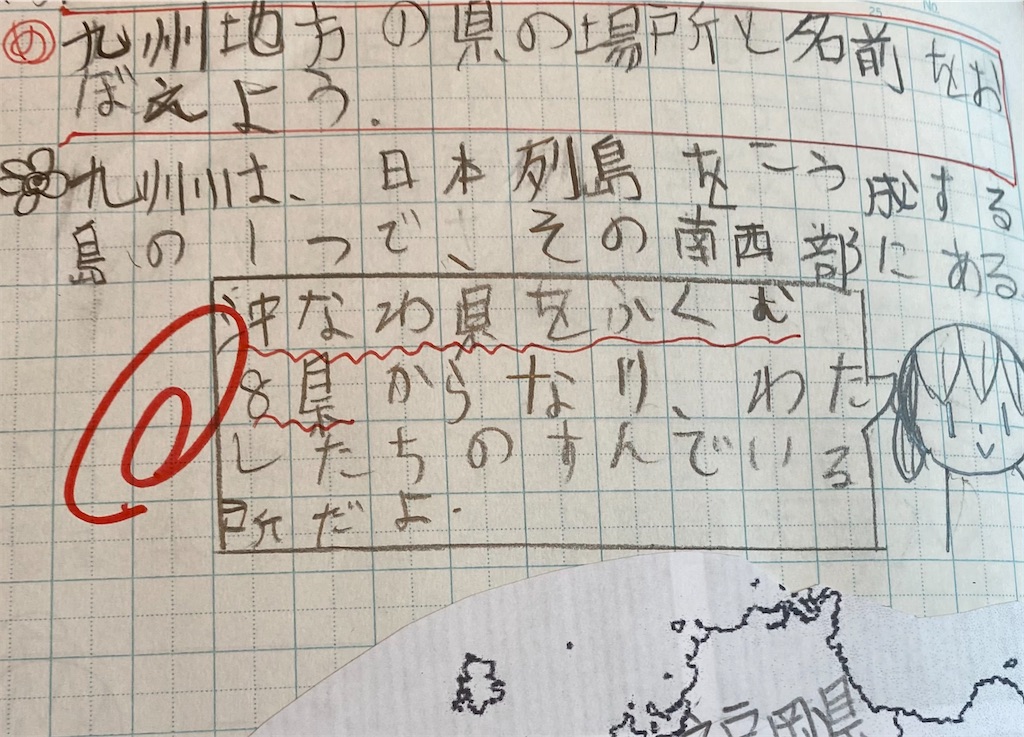 め 九州地方の県の場所と名前をお
ぼえよう.
九州は、日本列島をこう成する
島の1つで、その南西部にある
沖なわ県をふくむ
8県からなり、わた
したちのすんでいる
所だよ.
福岡県